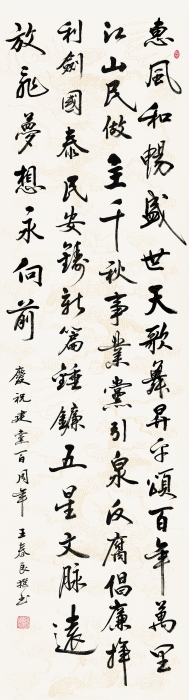 惠風和暢盛世天歌舞昇平頌百年萬里
江山民做主千秋事業黨引泉反腐倡廉揮
利劍國泰民安鑄新篇錘鐮五星文脉遠
放飛夢想永向前
慶祝建黨百周年 王春良撰书